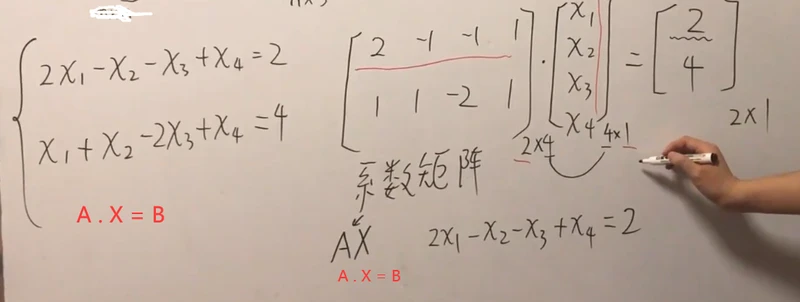 2x₁-x₂-x₃+x₄=2
x₁+x₂-2x₃+x₄=4
A.X=B
[2 -1 -1 1] · [x₁] = [2]
[1 1 -2 1] [x₂] [4]
x₃
x₄
2×4 4×1 2×1
系数矩阵
AX
A.X=B
2x₁-x₂-x₃+x₄=2